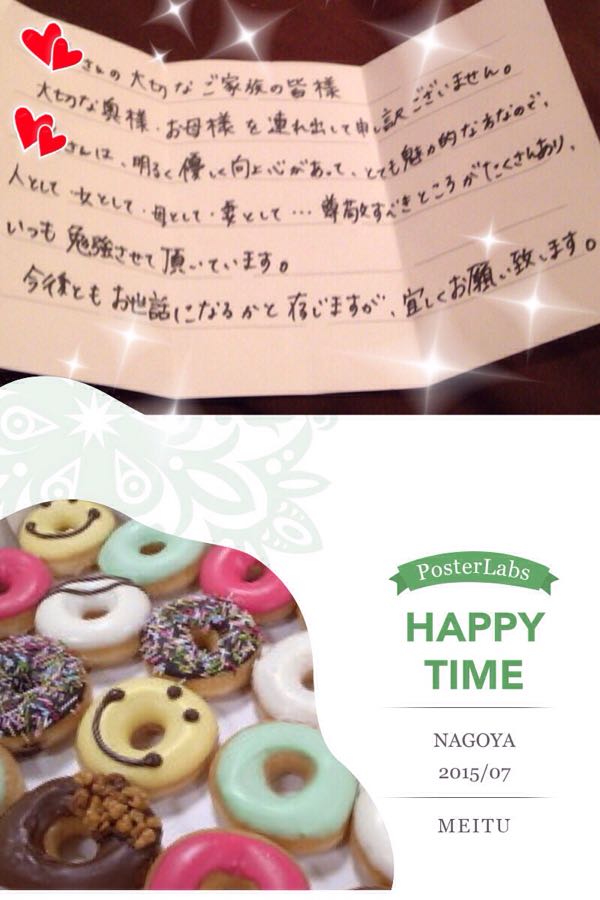 さんの大切なご家族の皆様
大切な奥様・お母様を連れ出して申し訳ございません。
さんは、明るく優しく向上心があって、とても魅力的な方なので、
人として女として・母として・妻として…尊敬すべきところがたくさんあり、
いつも勉強させて頂いています。
今後ともお世話になるかと存じますが、宜しくお願い致します。
PosterLabs
HAPPY
TIME
NAGOYA
2015/07
MEITU